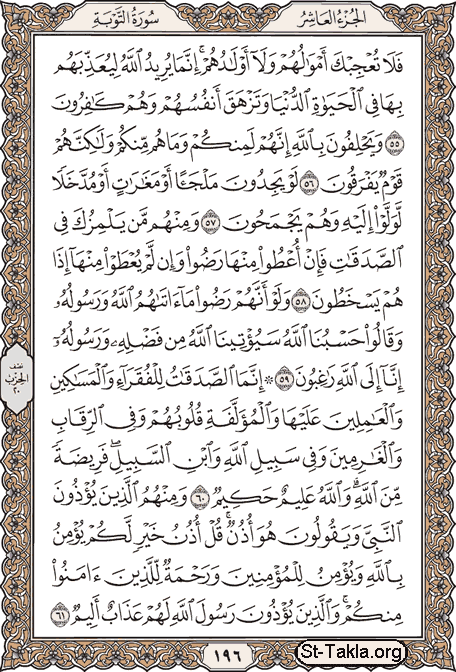 الجزء العاشر
سورة التوبة
فَلَا تُعْجِبْكَ أَمْوَٰلُهُمْ وَلَآ أَوْلَٰدُهُمْ ۚ إِنَّمَا يُرِيدُ ٱللَّهُ لِيُعَذِّبَهُم
بِهَا فِى ٱلْحَيَوٰةِ ٱلدُّنْيَا وَتَزْهَقَ أَنفُسُهُمْ وَهُمْ كَٰفِرُونَ
٥٥ وَيَحْلِفُونَ بِٱللَّهِ إِنَّهُمْ لَمِنكُمْ وَمَا هُم مِّنكُمْ وَلَٰكِنَّهُمْ
قَوْمٌ يَفْرَقُونَ ٥٦ لَوْ يَجِدُونَ مَلْجَـًٔا أَوْ مَغَٰرَٰتٍ أَوْ مُدَّخَلًا
لَّوَلَّوْا۟ إِلَيْهِ وَهُمْ يَجْمَحُونَ ٥٧ وَمِنْهُم مَّن يَلْمِزُكَ فِى
ٱلصَّدَقَٰتِ فَإِنْ أُعْطُوا۟ مِنْهَا رَضُوا۟ وَإِن لَّمْ يُعْطَوْا۟ مِنْهَآ إِذَا
هُمْ يَسْخَطُونَ ٥٨ وَلَوْ أَنَّهُمْ رَضُوا۟ مَآ ءَاتَىٰهُمُ ٱللَّهُ وَرَسُولُهُۥ
وَقَالُوا۟ حَسْبُنَا ٱللَّهُ سَيُؤْتِينَا ٱللَّهُ مِن فَضْلِهِۦ وَرَسُولُهُۥٓ
إِنَّآ إِلَى ٱللَّهِ رَٰغِبُونَ ٥٩ ۞ إِنَّمَا ٱلصَّدَقَٰتُ لِلْفُقَرَآءِ وَٱلْمَسَٰكِينِ
وَٱلْعَٰمِلِينَ عَلَيْهَا وَٱلْمُؤَلَّفَةِ قُلُوبُهُمْ وَفِى ٱلرِّقَابِ
وَٱلْغَٰرِمِينَ وَفِى سَبِيلِ ٱللَّهِ وَٱبْنِ ٱلسَّبِيلِ ۖ فَرِيضَةً
مِّنَ ٱللَّهِ ۗ وَٱللَّهُ عَلِيمٌ حَكِيمٌ ٦٠ وَمِنْهُمُ ٱلَّذِينَ يُؤْذُونَ
ٱلنَّبِىَّ وَيَقُولُونَ هُوَ أُذُنٌ ۚ قُلْ أُذُنُ خَيْرٍ لَّكُمْ يُؤْمِنُ
بِٱللَّهِ وَيُؤْمِنُ لِلْمُؤْمِنِينَ وَرَحْمَةٌ لِّلَّذِينَ ءَامَنُوا۟
مِنكُمْ ۚ وَٱلَّذِينَ يُؤْذُونَ رَسُولَ ٱللَّهِ لَهُمْ عَذَابٌ أَلِيمٌ ٦١
نصف
الحزب
٢٠
١٩٦
St-Takla.org